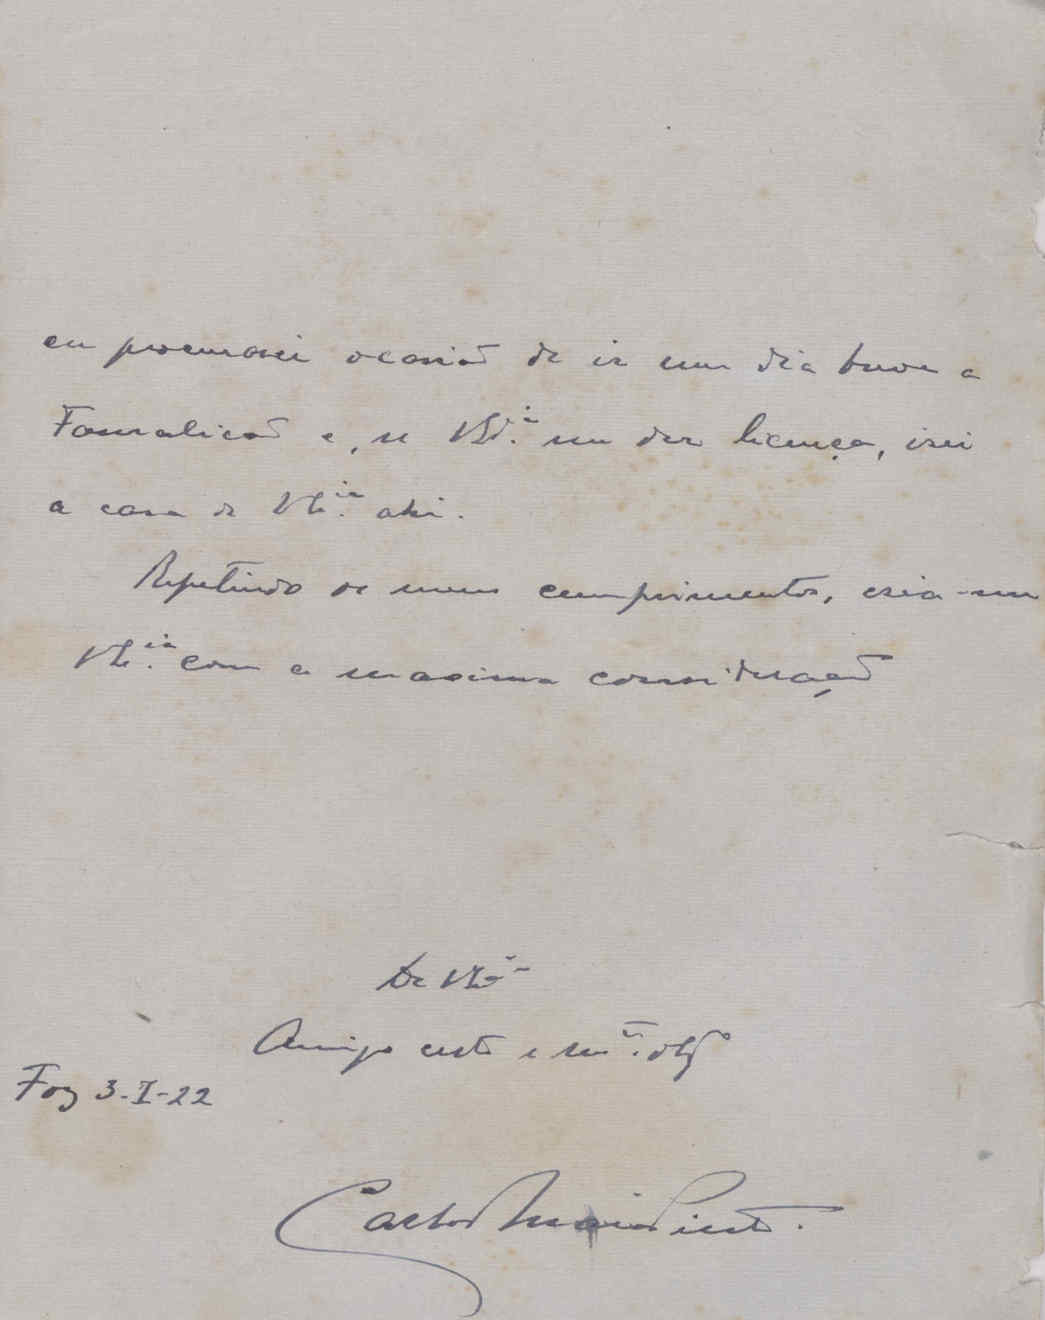 eu procurarei ocasião de ir um dia breve a
Famalicão e, se V. Ex.ia me der licença, irei
a casa de V. Ex.ia ahi.
Repetindo os meus cumprimentos, creia-me
V. Ex.ia com a maxima consideração
De V. Ex.ia
Amigo certo e m.to obg.do
Foz 3-I-22
Carlos Maia Pinto.